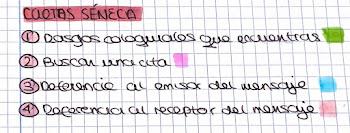 CUOTAS SÉNECA
① Rasgos coloquiales que encuentras
② Buscar una cita
③ Referencia al emisor del mensaje
④ Referencia al receptor del mensaje